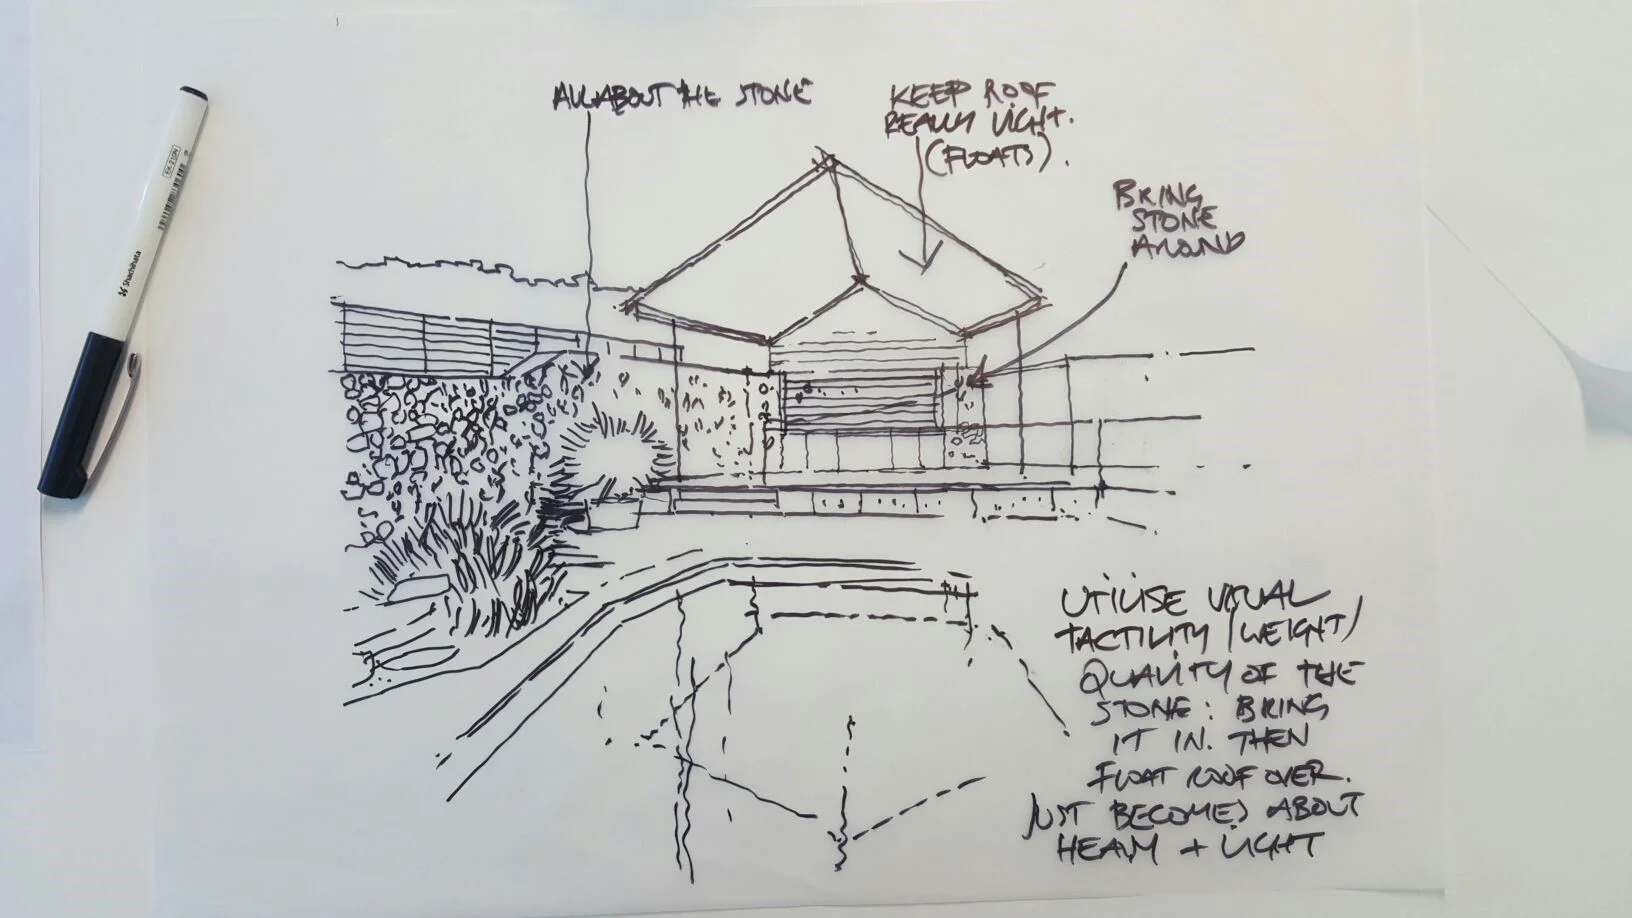 ALL ABOUT THE STONE
KEEP ROOF
REALLY LIGHT.
(FLOATS).
BRING
STONE
AROUND
UTILISE VISUAL
TACTILITY / WEIGHT /
QUALITY OF THE
STONE: BRING
IT IN. THEN
FLOAT ROOF OVER.
JUST BECOMES ABOUT
HEAVY + LIGHT
Shachihata